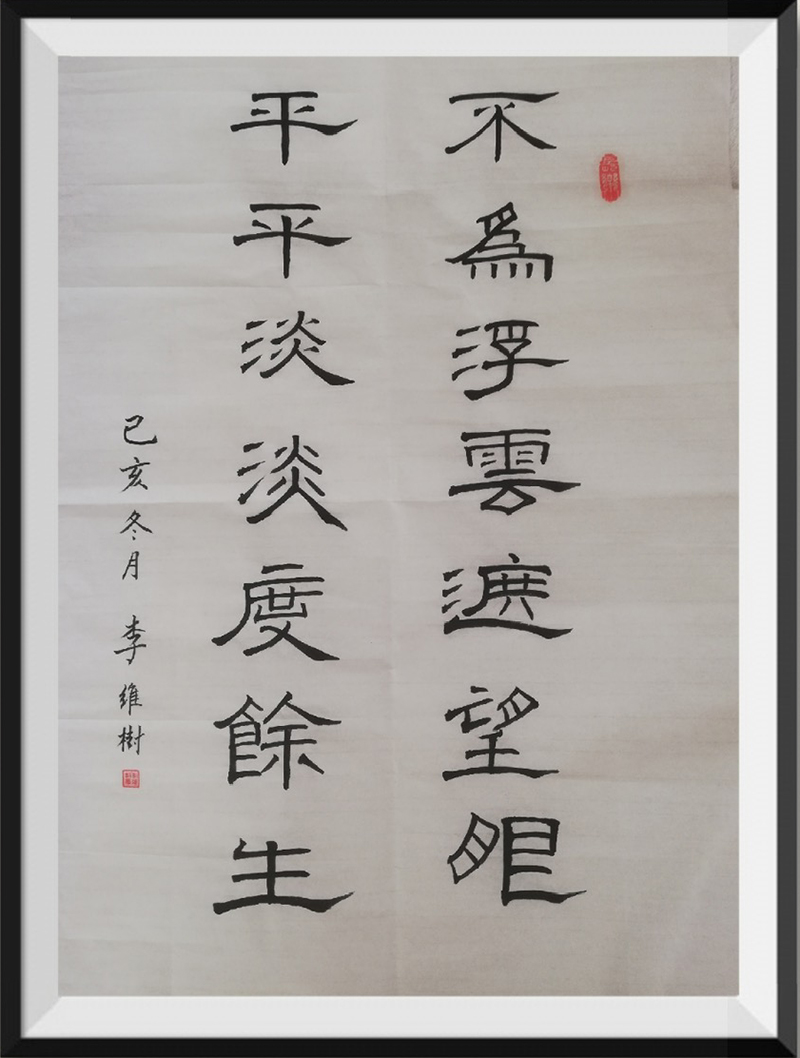 不為浮雲遮望眼
平平淡淡度餘生
己亥冬月 李維樹